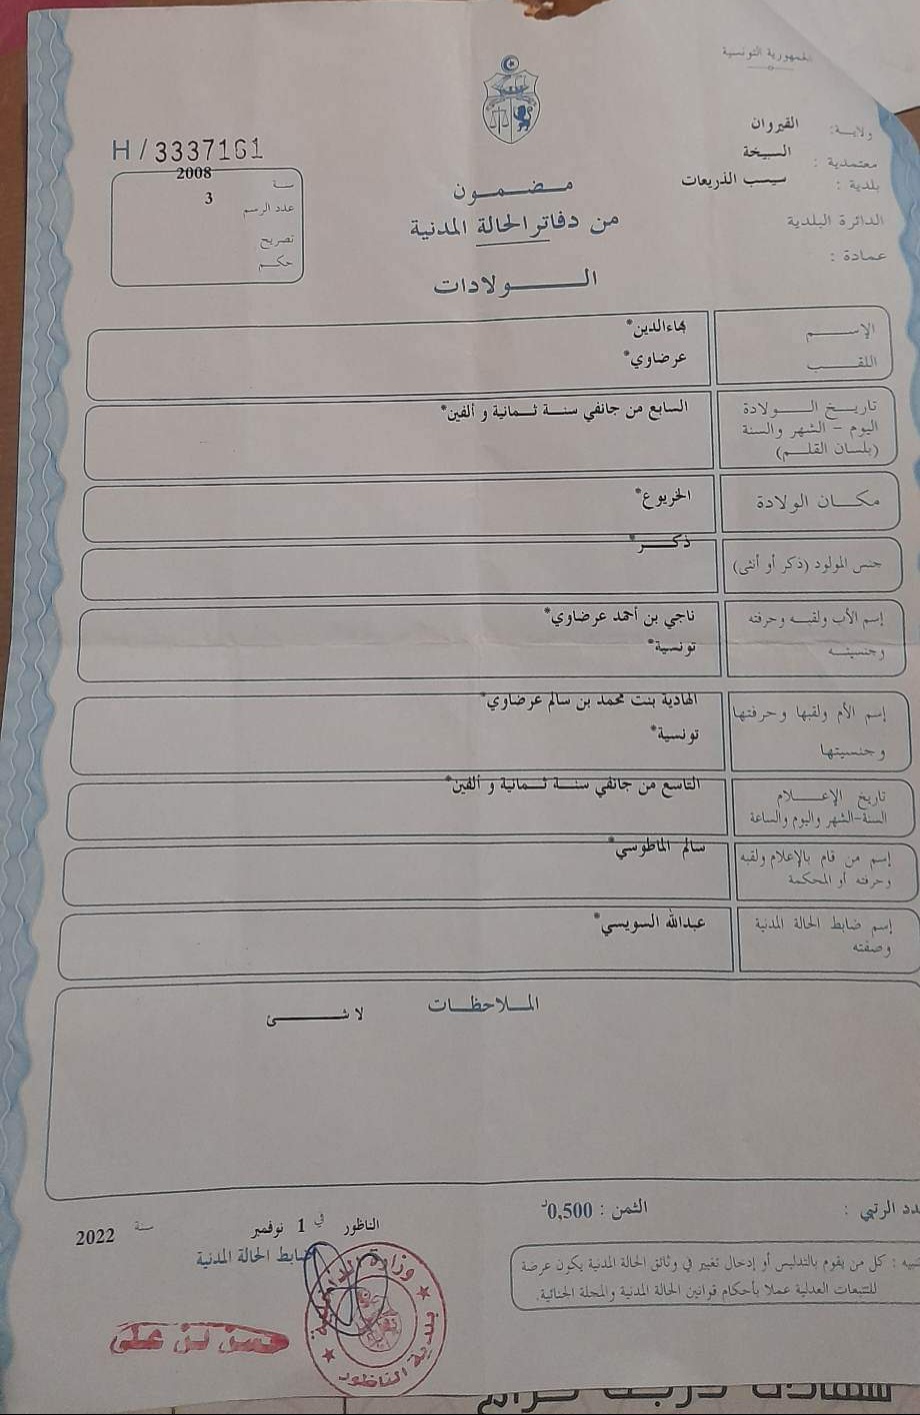 الجمهورية التونسية
ولاية: القيروان
معتمدية : السبيخة
بلدية : سيسب الذريعات
الدائرة البلدية
عمادة :
H/3337161
سنة 2008
عدد الرسم 3
تصريح
حكم
مضمون
من دفاتر الحالة المدنية
الولادات
الإسم بهاءالدين*
اللقب عرضاوي*
تاريخ الولادة السابع من جانفي سنة ثمانية و ألفين*
اليوم - الشهر والسنة
(بلسان القلم)
مكان الولادة الخريوع*
جنس المولود (ذكر أو أنثى) ذكر*
إسم الأب ولقبه وحرفته ناجي بن أحمد عرضاوي*
وجنسيته تونسية*
إسم الأم ولقبها وحرفتها الهادية بنت محمد بن سالم عرضاوي*
وجنسيتها تونسية*
تاريخ الإعلام التاسع من جانفي سنة ثمانية و ألفين*
السنة-الشهر واليوم والساعة
إسم من قام بالإعلام ولقبه سالم الماطوسي*
وحرفته أو المحكمة
إسم ضابط الحالة المدنية عبدالله السويسي*
وصفته
الملاحظات
لا شئ
عدد الرتبي :
الثمن : 0,500د
الناظور في 1 نوفمبر سنة 2022
ضابط الحالة المدنية
تنبيه : كل من يقوم بالتدليس أو إدخال تغيير في وثائق الحالة المدنية يكون عرضة
للتتبعات العدلية عملا بأحكام قوانين الحالة المدنية والمجلة الجنائية.
وزارة الداخلية
بلدية الناظور
حسن بن علي